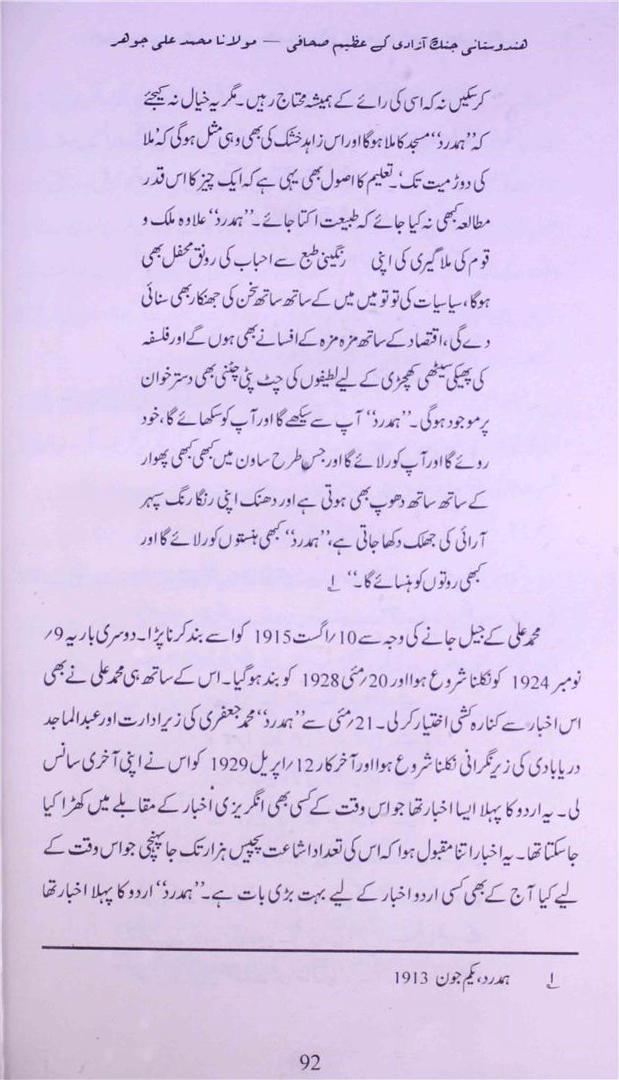 ھندوستانی جنگ آزادی کے عظیم صحافی — مولانا محمد علی جوھر
کرسکیں نہ کہ اسی کی رائے کے ہمیشہ محتاج رہیں۔ مگر یہ خیال نہ کیجئے
کہ ’’ہمدرد‘‘ مسجد کا ملا ہوگا اور اس زاہد خشک کی بھی وہی مثل ہوگی کہ ’ملا
کی دوڑ میت تک‘۔ تعلیم کا اصول بھی یہی ہے کہ ایک چیز کا اس قدر
مطالعہ کبھی نہ کیا جائے کہ طبیعت اکتا جائے۔ ’’ہمدرد‘‘ علاوہ ملک و
قوم کی ملا گیری کی اپنی رنگینی طبع سے احباب کی رونق محفل بھی
ہوگا، سیاسیات کی تو تو میں میں کے ساتھ ساتھ سخن کی جھنکار بھی سنائی
دے گی، اقتصاد کے ساتھ مزہ مزہ کے افسانے بھی ہوں گے اور فلسفہ
کی پھیکی سیٹھی کھچڑی کے لیے لطیفوں کی چٹ پٹی چٹنی بھی دسترخوان
پر موجود ہوگی۔ ’’ہمدرد‘‘ آپ سے سیکھے گا اور آپ کو سکھائے گا، خود
روئے گا اور آپ کو رلائے گا اور جس طرح ساون میں کبھی کبھی پھوار
کے ساتھ ساتھ دھوپ بھی ہوتی ہے اور دھنک اپنی رنگا رنگ سپہر
آرائی کی جھلک دکھا جاتی ہے، ’’ہمدرد‘‘ کبھی ہنستوں کو رلائے گا اور
کبھی روتوں کو ہنسائے گا۔‘‘ ۱؎
محمد علی کے جیل جانے کی وجہ سے 10/اگست 1915 کو اسے بند کرنا پڑا۔ دوسری بار یہ 9/
نومبر 1924 کو نکلنا شروع ہوا اور 20/مئی 1928 کو بند ہوگیا۔ اس کے ساتھ ہی محمد علی نے بھی
اس اخبار سے کنارہ کشی اختیار کرلی۔ 21/مئی سے ’’ہمدرد‘‘ محمد جعفری کی زیر ادارت اور عبدالماجد
دریابادی کی زیر نگرانی نکلنا شروع ہوا اور آخرکار 12/اپریل 1929 کو اس نے اپنی آخری سانس
لی۔ یہ اردو کا پہلا ایسا اخبار تھا جو اس وقت کے کسی بھی انگریزی اخبار کے مقابلے میں کھڑا کیا
جاسکتا تھا۔ یہ اخبار اتنا مقبول ہوا کہ اس کی تعداد اشاعت پچیس ہزار تک جا پہنچی جو اس وقت کے
لیے کیا آج کے بھی کسی اردو اخبار کے لیے بہت بڑی بات ہے۔ ’’ہمدرد‘‘ اردو کا پہلا اخبار تھا
۱؎ ہمدرد، یکم جون 1913
92